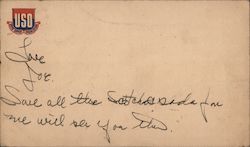 USO
Love
Joe.
Save all the Scotch & soda for
me will see you then.